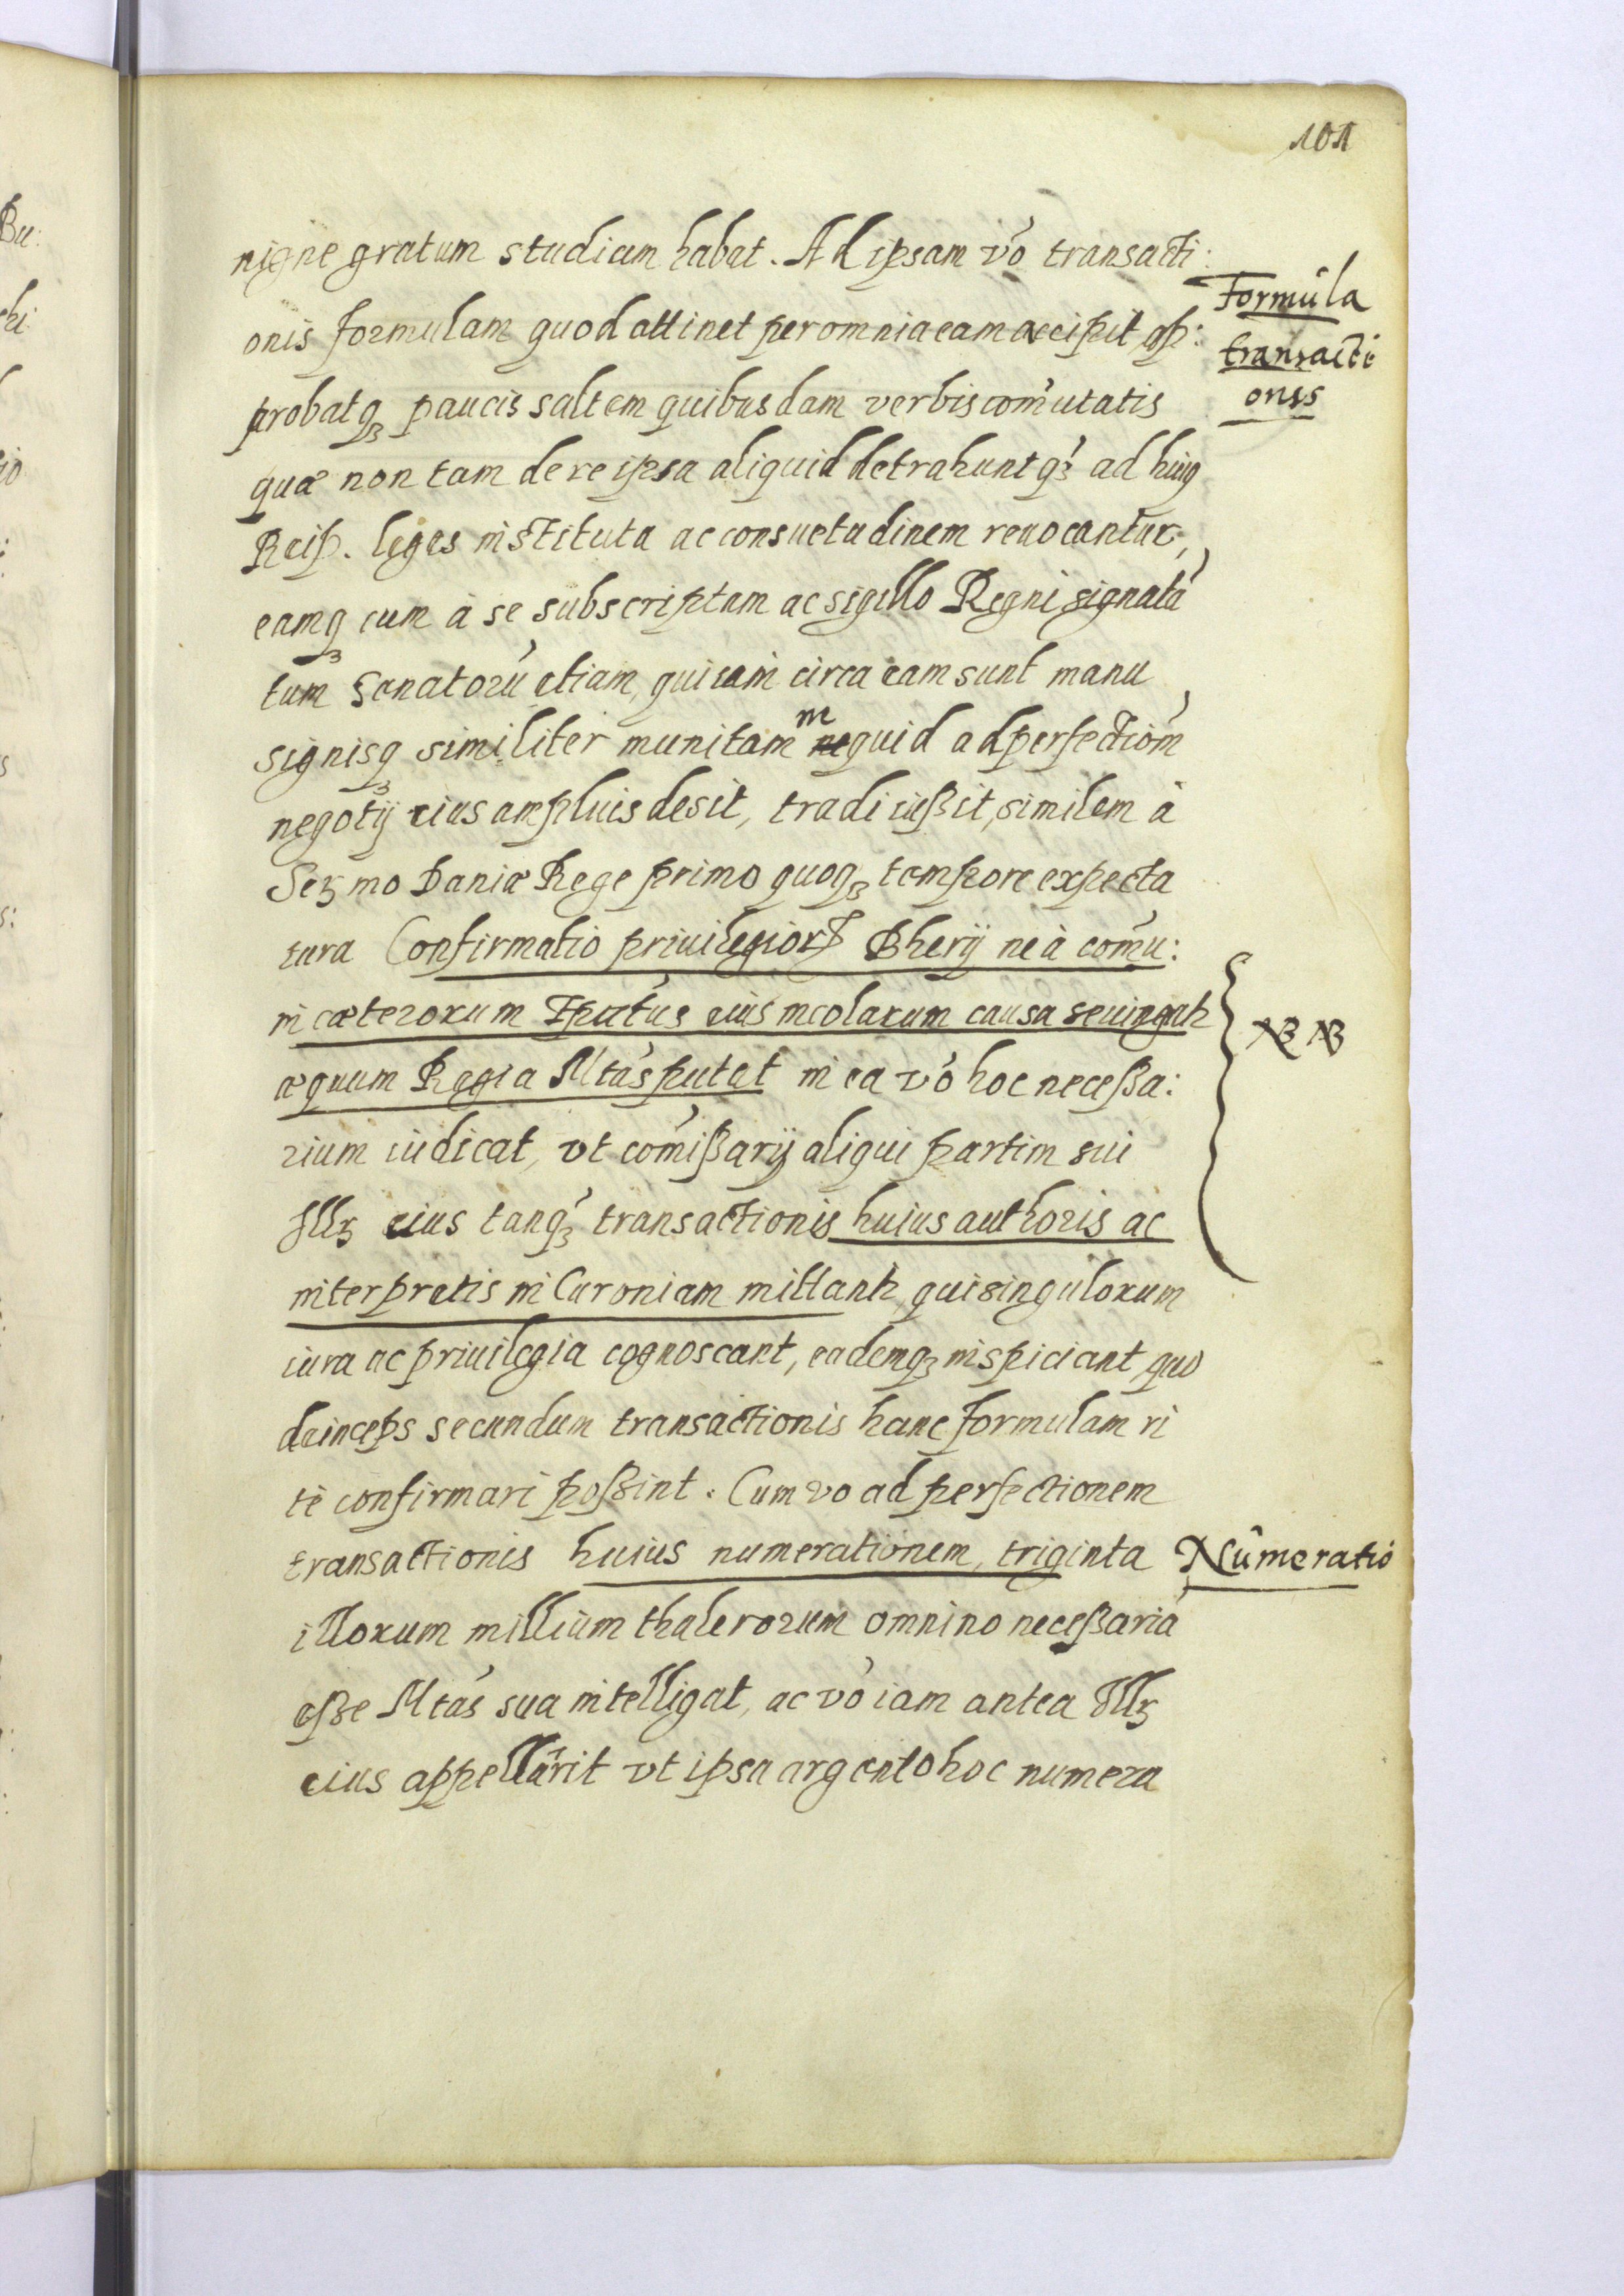 101
nigne gratum studium habet. Ad ipsam vo transacti:
onis formulam quod attinet per omnia eam accipit ap:
probatqꝫ paucis saltem quibusdam verbis comutatis
Formula
transacti
onis
quæ non tam de re ipsa aliquid detrahunt qꝫ ad huiꝰ
Reip. leges instituta ac consuetudinem reuocantur,
eamqꝫ cum à se subscriptam ac sigillo Regni signatā
tum Senatorū etiam, qui iam circa eam sunt manu
signisqꝫ similiter munitam ne quid ad perfectiom
negotij eius ampluis desit, tradi iußit, similem à
Serꝫmo Daniæ Rege primo quoqꝫ tempore expecta
tura Confirmatio priuilegiorꝝ Bherij ne à comu:
ni cæterorum eius incolarum causa seuingatr
æquum Regia Mtas putet in ea vo hoc neceßa:
NB NB
rium iudicat, vt comißarij aliqui partim sui
Illꝫ eius tanqꝫ transactionis huius authoris ac
interpretis in Curoniam mittantr qui singulorum
iura ac priuilegia cognoscant, eademqꝫ inspiciant quo
deinceps secundum transactionis hanc formulam ri
te confirmari poßint. Cum vo ad perfectionem
transactionis huius numerationem, triginta
Numeratio
illorum millium thalerorum omnino neceßariā
eße Mtas sua intelligat, ac vo iam antea Illꝫ
eius appellarit vt ipsa argento hoc numera